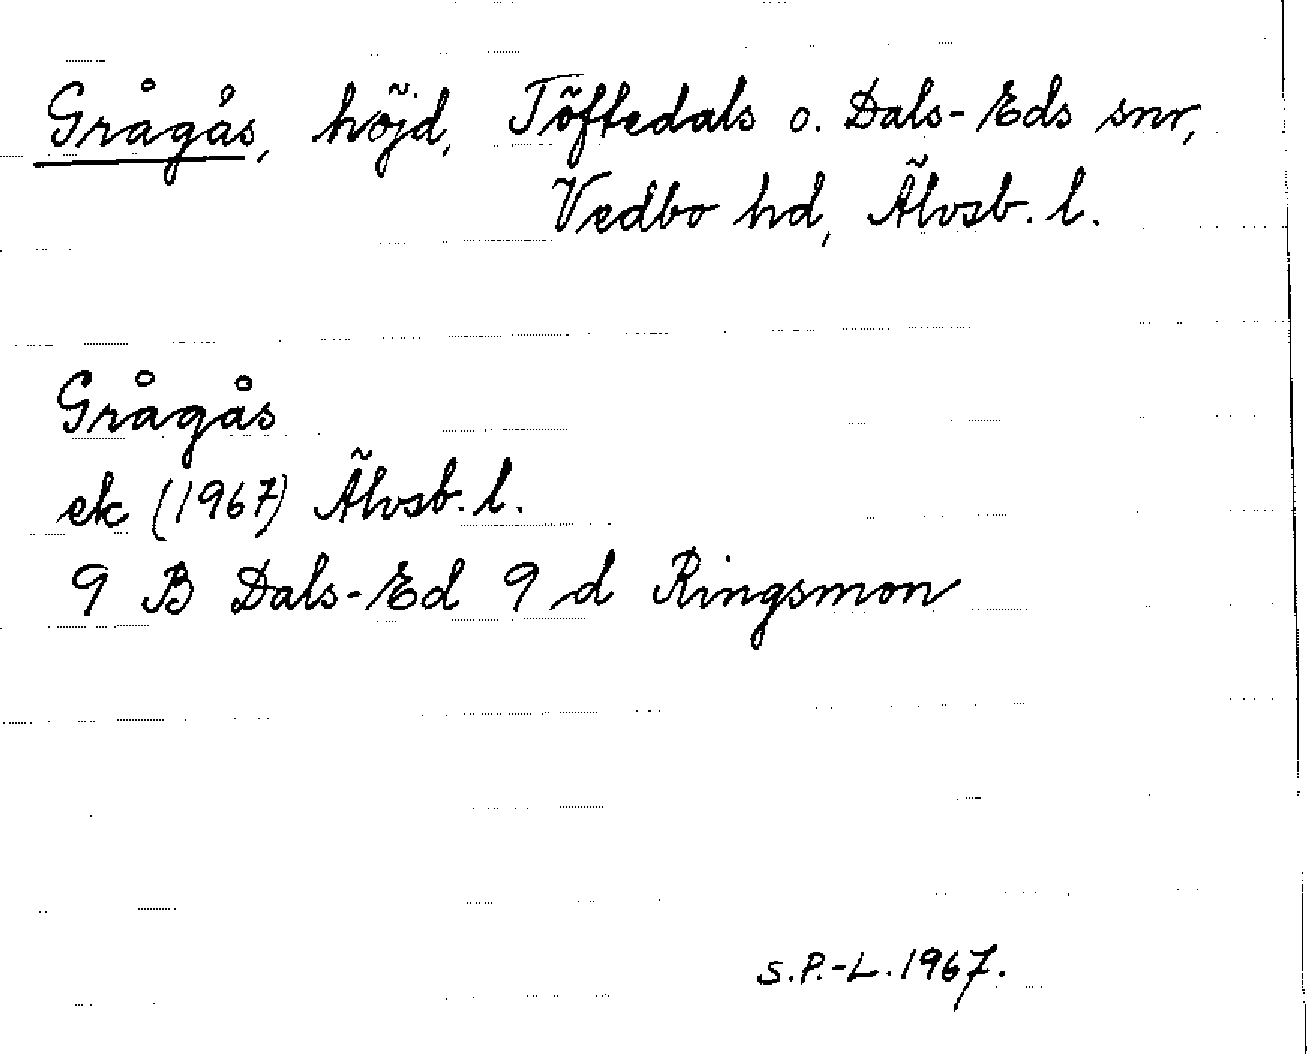 Grågås, höjd, Töftedals o. Dals-Eds snr,
Vedbo hd, Älvsb. l.
Grågås
ek (1967) Älvsb. l.
9 B Dals-Ed 9 d Ringsmon
S.P.-L. 1967.